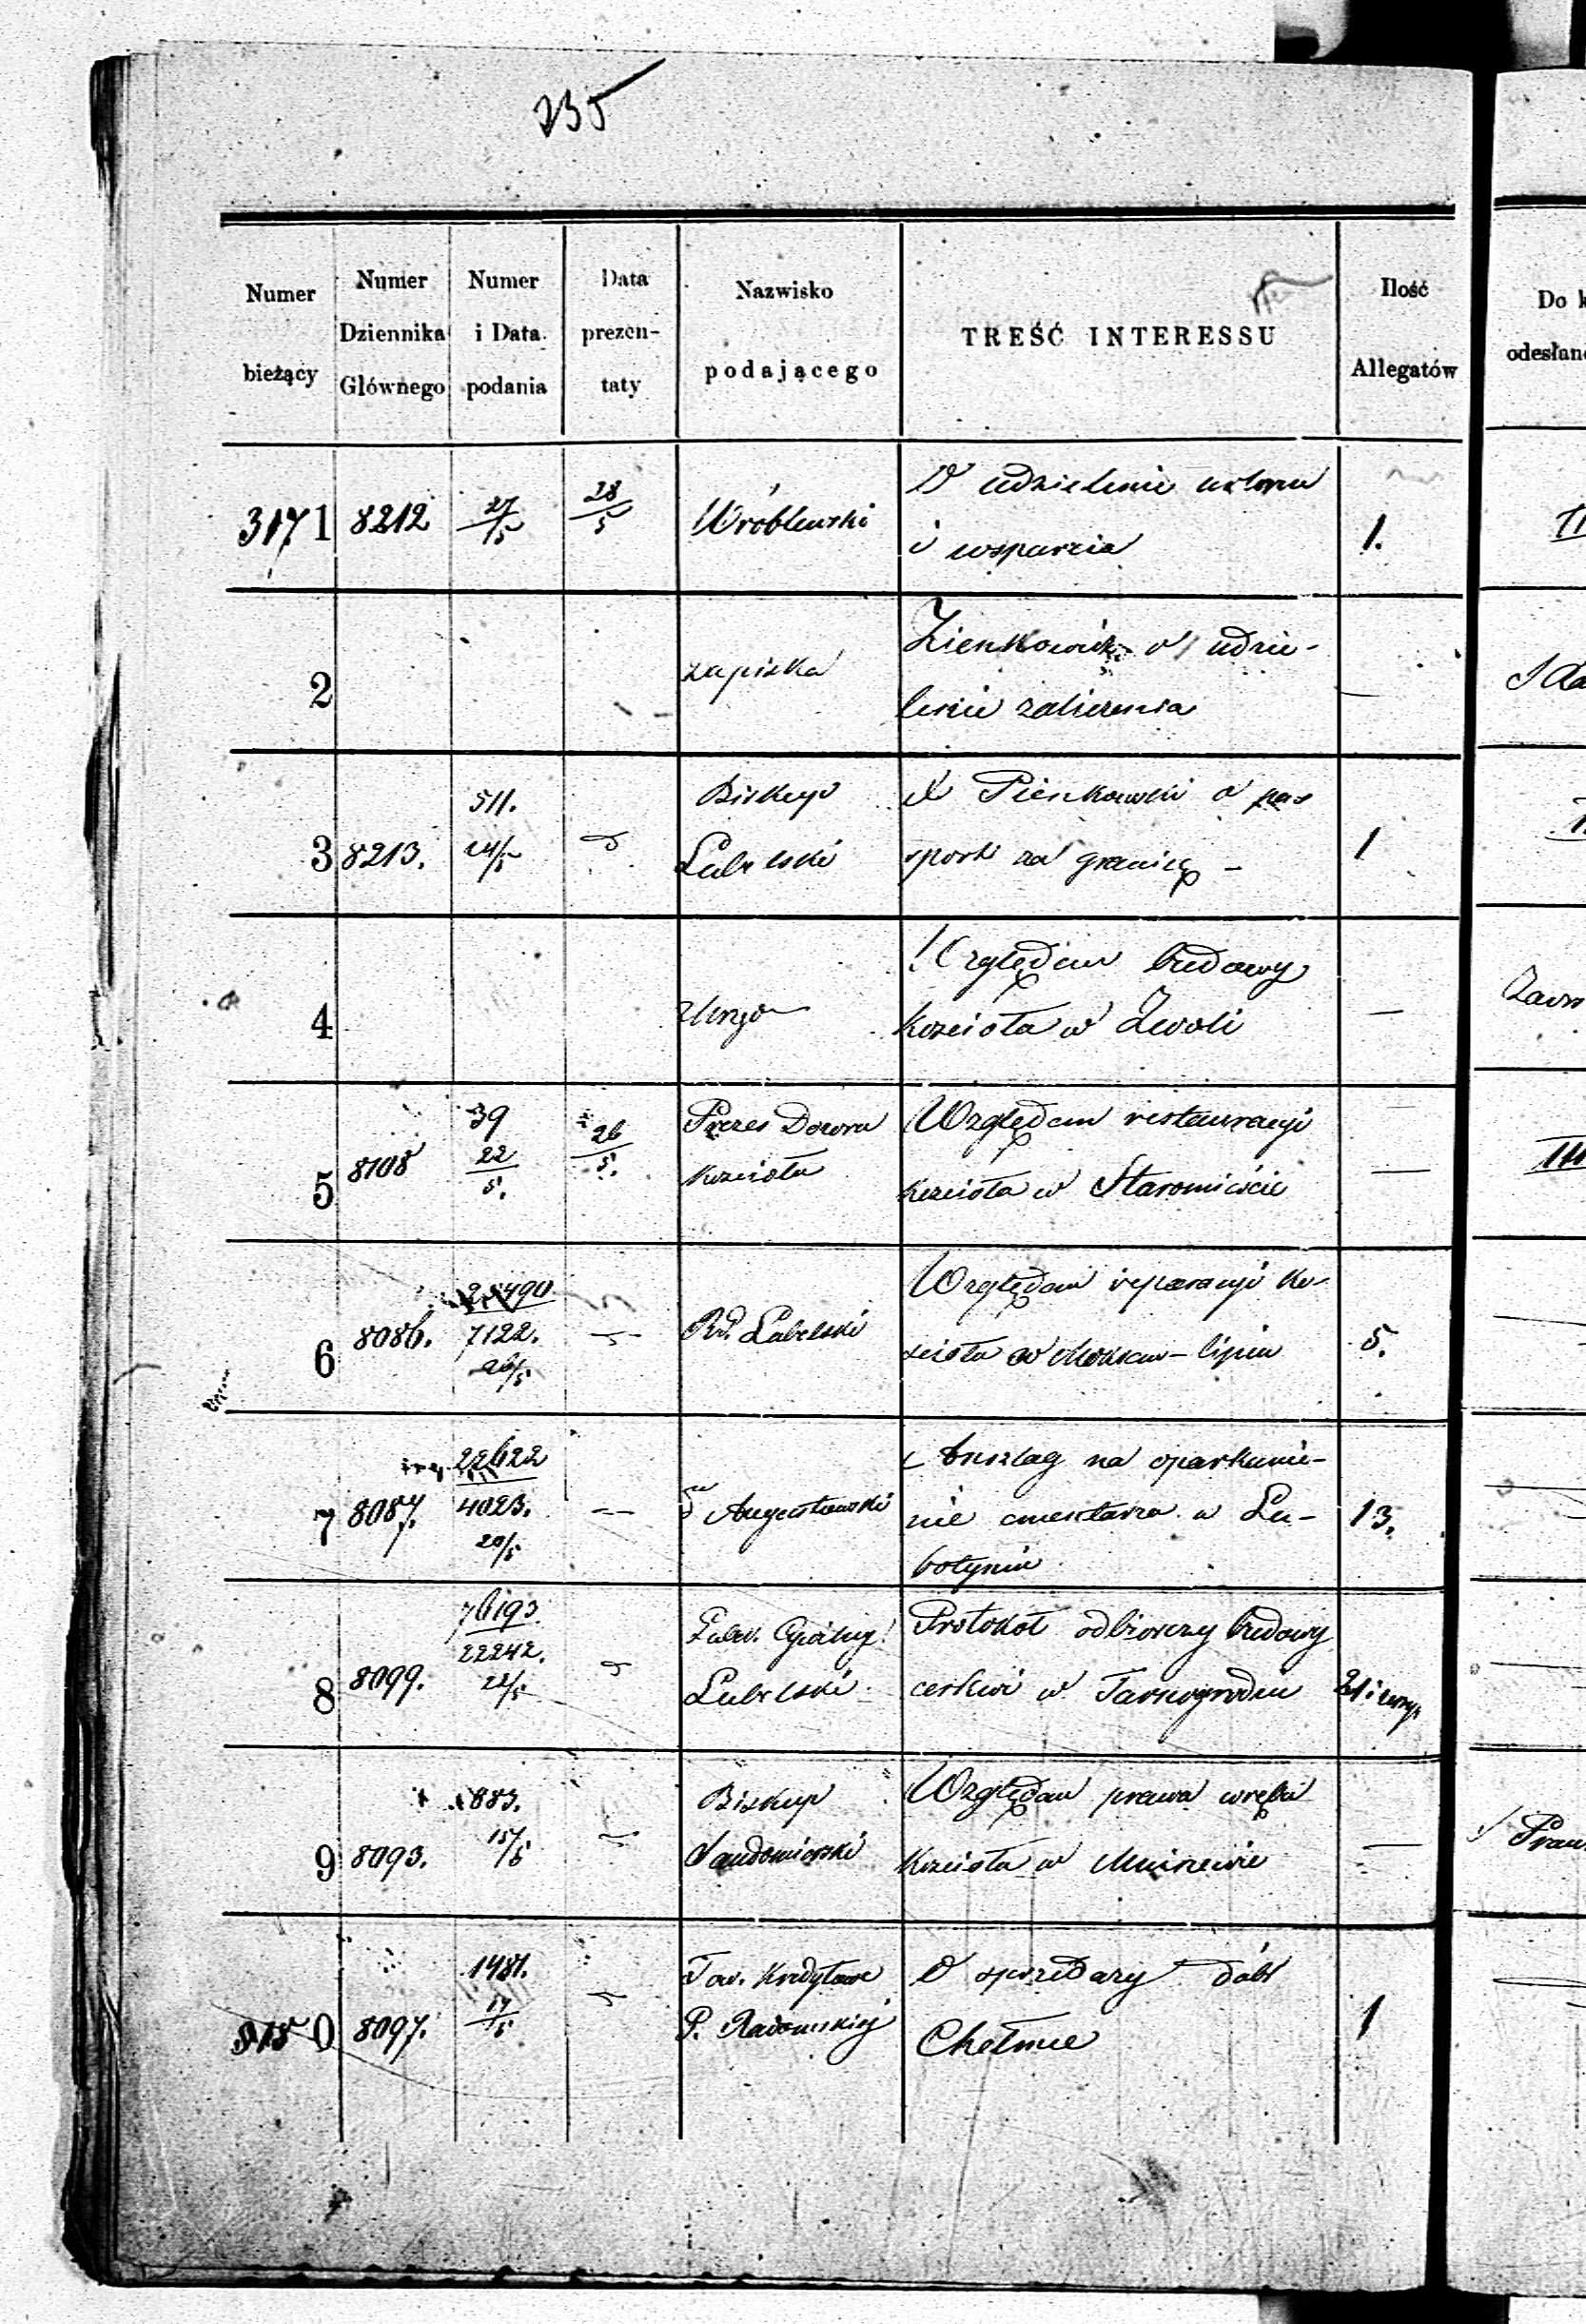 235
Numer bieżący
Numer Dziennika Głównego
Numer i Data podania
Data prezentaty
Nazwisko podającego
TREŚĆ INTERESSU
Ilość Allegatów
Do k
odesłan
3171 8212 27/5 28/5 Wróblewski O udzielenie
i wsparcia 1.
2 zapiska Zienkowicz o udzie-
lenie —
3 8213. 511. 24/5 Biskup Lubelski X Pieńkowski o pas
sport za granicę – 1
4 Względem budowy
kościoła w Zwoli —
5 8108 39 22/5. 26/5. Prezes Dozoru kościoła Względem restauracyi
kościoła w Staromieście —
III
6 8086. 23490 7122. 26/5 Rd. Lubelski Względem reparacyi ko-
ścioła w Mokrem-lipiu 5.
7 8087. 22622 4023. 20/5 — Augustowski Anszlag na oparkanie-
nie cmentarza w Lu-
botyniu 13.
8 8099. 76193 22242. 22/5 Lubelski Protokół odbiorczy budowy
cerkwi w Tarnogrodzie
9 8093. 883. 15/5 Biskup Sandomierski Względem prawa wrębu
kościoła w Mniszewie —
Praw
3180 8097. 1481. 17/5 Tow. Kredytowe P. Radomskiej O sprzedaży dóbr
Chełmce 1